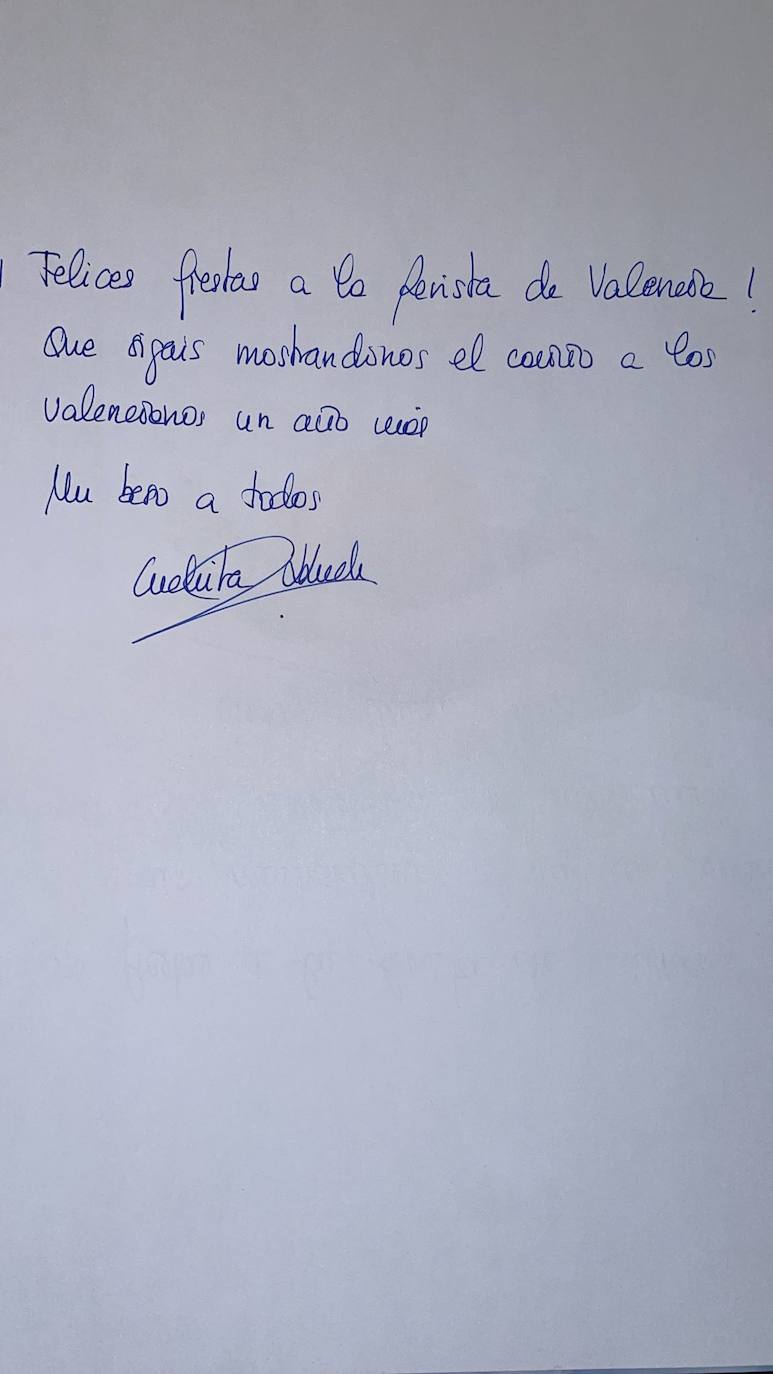 ¡Felices fiestas a la Revista de Valencia!
Que sigais mostrandonos el camino a los
valencianos un año más
Un beso a todos
Cuchita